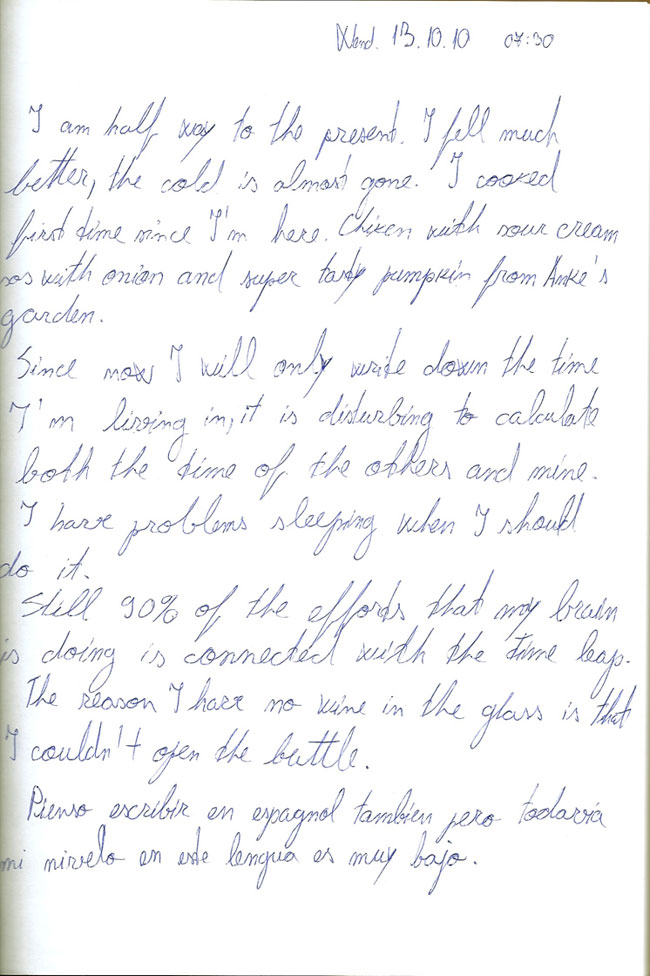 Wend. 13.10.10 07:30
I am half way to the present. I fell much
better, the cold is almost gone. I cooked
first time since I'm here. Chiken with sour cream
sos with onion and super tasty pumpkin from Anke's
garden.
Since now I will only write down the time
I'm living in, it is disturbing to calculate
both the time of the others and mine.
I have problems sleeping when I should
do it.
Still 90% of the efforts that my brain
is doing is connected with the time leap.
The reason I have no wine in the glass is that
I couldn't open the buttle.
Pienso escribir en espagnol tambien pero todavia
mi nivelo en este lengua es muy bajo.